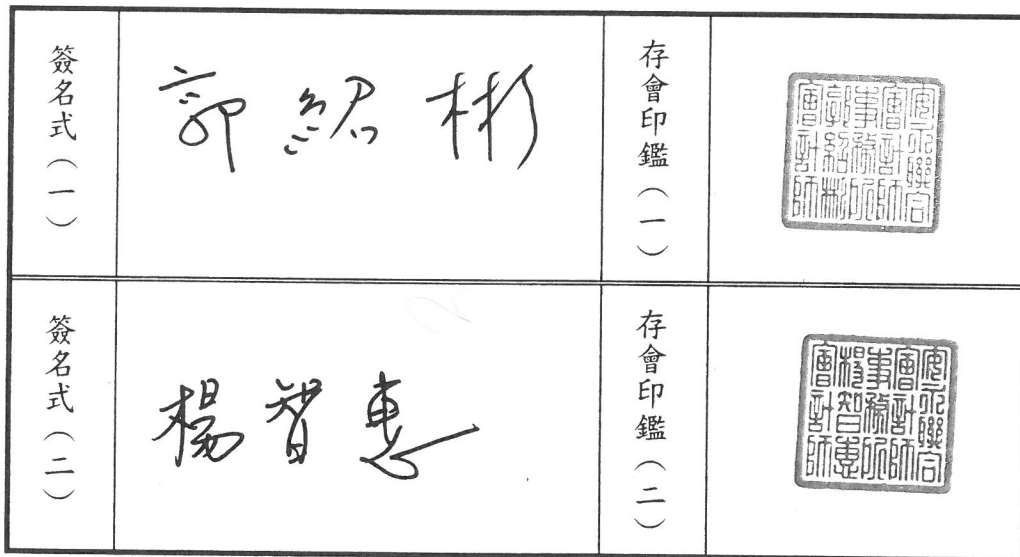 簽名式(一)
郭紹彬
存會印鑑(一)
安永聯合
會計師
事務所
郭紹彬
會計師
簽名式(二)
楊智惠
存會印鑑(二)
安永聯合
會計師
事務所
楊智惠
會計師